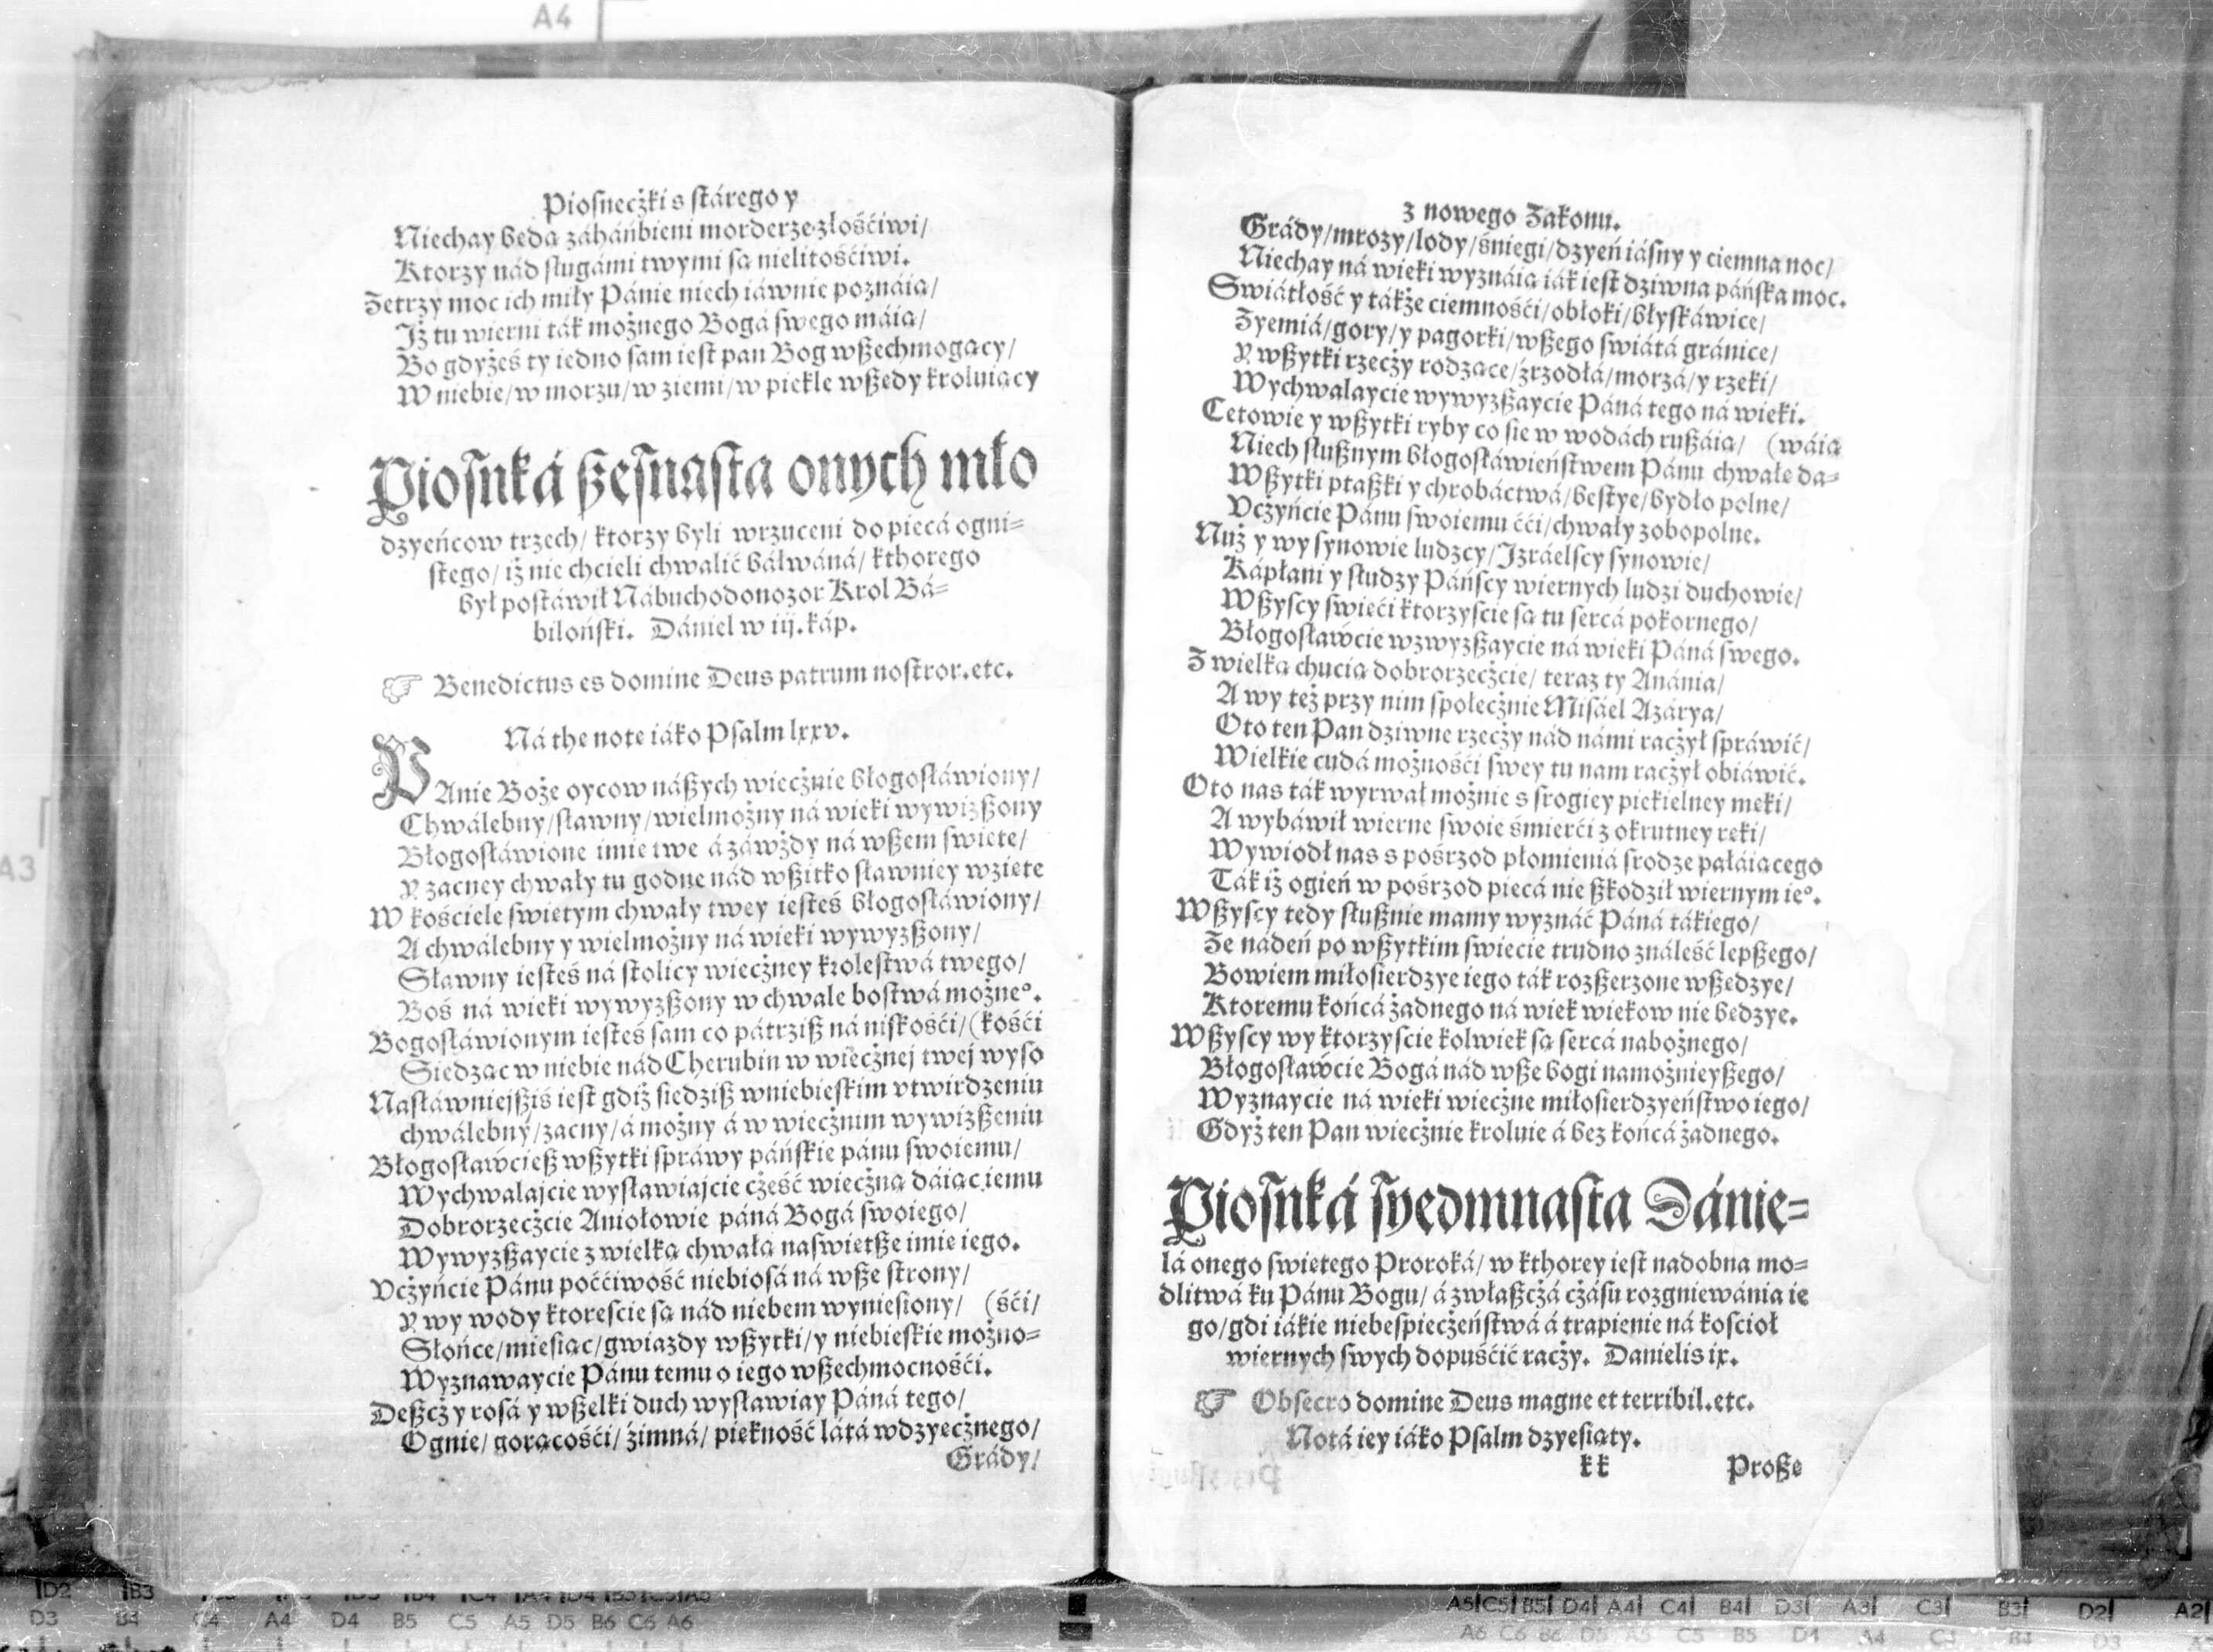 Piosnecżki s stárego y
Niechay bedą záháńbieni morderze złośćiwi/
Ktorzy nád sługámi twymi są nielitośćiwi.
Zetrzy moc ich miły Pánie niech iáwnie poznáią/
Iż tu wierni ták możnego Bogá swego máią/
Bo gdyżeś ty iedno sam iest pan Bog wßechmogący/
W niebie/w morzu/w ziemi/w piekle wßedy kroluiący
Piosnká ßesnasta onych mło
dzyeńcow trzech/ ktorzy byli wrzuceni do piecá ogni=
stego/ iż nie chcieli chwalić báłwáná/ kthorego
był postáwił Nábuchodonozor Krol Bá=
biloński. Dániel w iij. káp.
☞ Benedictus es domine Deus patrum nostror. etc.
Ná the note iáko Psalm lxxv.
PAnie Boże oycow náßych wiecżnie błogosłáwiony/
Chwálebny/sławny/wielmożny ná wieki wywizßony
Błogosłáwione imie twe á záwżdy ná wßem swiete/
Y zacney chwały tu godne nád wßitko sławniey wziete
W kościele swietym chwały twey iesteś błogosłáwiony/
A chwálebny y wielmożny ná wieki wywyzßony/
Sławny iesteś ná stolicy wiecżney krolestwá twego/
Boś ná wieki wywyzßony w chwale bostwá możneº.
Bogosłáwionym iesteś sam co pátrziß ná niskośći/ (kośći
Siedząc w niebie nád Cherubin w wiecżnej twej wyso
Nasłáwniejßiś iest gdiż siedziß w niebieskim vtwirdzeniu
chwálebny/zacny/á możny á w wiecżnim wywizßeniu
Błogosłáwcieß wßytki spráwy páńskie pánu swoiemu/
Wychwalajcie wysławiajcie cżeść wiecżną dáiąc iemu
Dobrorzecżcie Aniołowie páná Bogá swoiego/
Wywyzßaycie z wielką chwałą naswietße imie iego.
Vcżyńcie Pánu poććiwość niebiosá ná wße strony/
Y wy wody ktorescie są nád niebem wyniesiony/ (śći/
Słońce/miesiąc/gwiazdy wßytki/y niebieskie możno=
Wyznawaycie Pánu temu o iego wßechmocnośći.
Deßcż y rosá y wßelki duch wysławiay Páná tego/
Ognie/ gorącośći/ źimná/ piekność látá wdzyecżnego/
Grády/
z nowego Zakonu.
Grády/mrozy/lody/śniegi/dzyeń iásny y ciemna noc/
Niechay ná wieki wyznáią iák iest dziwna páńska moc.
Swiátłość y tákże ciemnośći/obłoki/błyskáwice/
Zyemiá/gory/y pagorki/wßego swiátá gránice/
Y wßytki rzecży rodzące/źrzodłá/morzá/y rzeki/
Wychwalaycie wywyzßaycie Páná tego ná wieki.
Cetowie y wßytki ryby co sie w wodách rußáią/ (wáią
Niech słußnym błogosłáwieństwem Pánu chwałe da=
Wßytki ptaßki y chrobáctwá/bestye/bydło polne/
Vcżyńcie Pánu swoiemu ćći/chwały zobopolne.
Nuż y wy synowie ludzcy/Izráelscy synowie/
Kápłani y słudzy Páńscy wiernych ludzi duchowie/
Wßyscy swieći ktorzyscie są tu sercá pokornego/
Błogosłáwcie wzwyzßaycie ná wieki Páná swego.
Z wielką chucią dobrorzecżcie/ teraz ty Anánia/
A wy też przy nim społecżnie Misáel Azárya/
Oto ten Pan dziwne rzecży nád námi racżył spráwić/
Wielkie cudá możnośći swey tu nam racżył obiáwić.
Oto nas ták wyrwał możnie s srogiey piekielney meki/
A wybáwił wierne swoie śmierći z okrutney reki/
Wywiodł nas s pośrzod płomieniá srodze pałáiącego
Ták iż ogień w pośrzod piecá nie ßkodził wiernym ieº.
Wßyscy tedy słußnie mamy wyznáć Páná tákiego/
Że nádeń po wßytkim swiecie trudnoználeść lepßego/
Bowiem miłosierdzye iego ták rozßerzone wßedzye/
Ktoremu końcá żadnego ná wiek wiekow nie bedzye.
Wßyscy wy ktorzyscie kolwiek są sercá nabożnego/
Błogosławcie Bogá nád wße bogi namożnieyßego/
Wyznaycie ná wieki wiecżne miłosierdzyeństwo iego/
Gdyż ten Pan wiecżnie kroluie á bez końcá żadnego.
Piosnká syedmnasta Dánie=
lá onego swietego Proroká/ w kthorey iest nadobna mo=
dlitwá ku Pánu Bogu/ á zwłaßcżá cżásu rozgniewánia ie
go/gdi iákie niebespiecżeństwá á trapienie ná kościoł
wiernych swych dopuśćić racży. Danielis ix.
☞ Obsecro domine Deus magne et terribil. etc.
Notá iey iáko Psalm dzyesiąty.
kk Proße